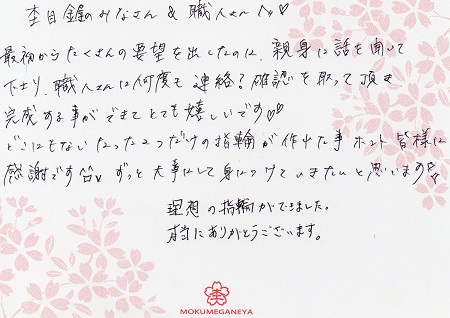 杢目金屋のみなさん & 職人さんへ♡
最初からたくさんの要望を出したのに、親身に話を聞いて
下さり、職人さんに何度も連絡?確認を取って頂き
完成する事ができてとても嬉しいです♡♡
どこにもないたった2つだけの指輪が作れた事 ホント皆様に
感謝です^^ ずっと大事にして身につけていきたいと思います!!
理想の指輪ができました。
本当にありがとうございます。
MOKUMEGANEYA